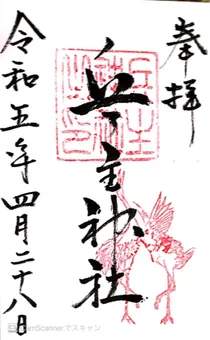 奉拝
兵主神社
令和五年四月二十八日
CamScannerでスキャン